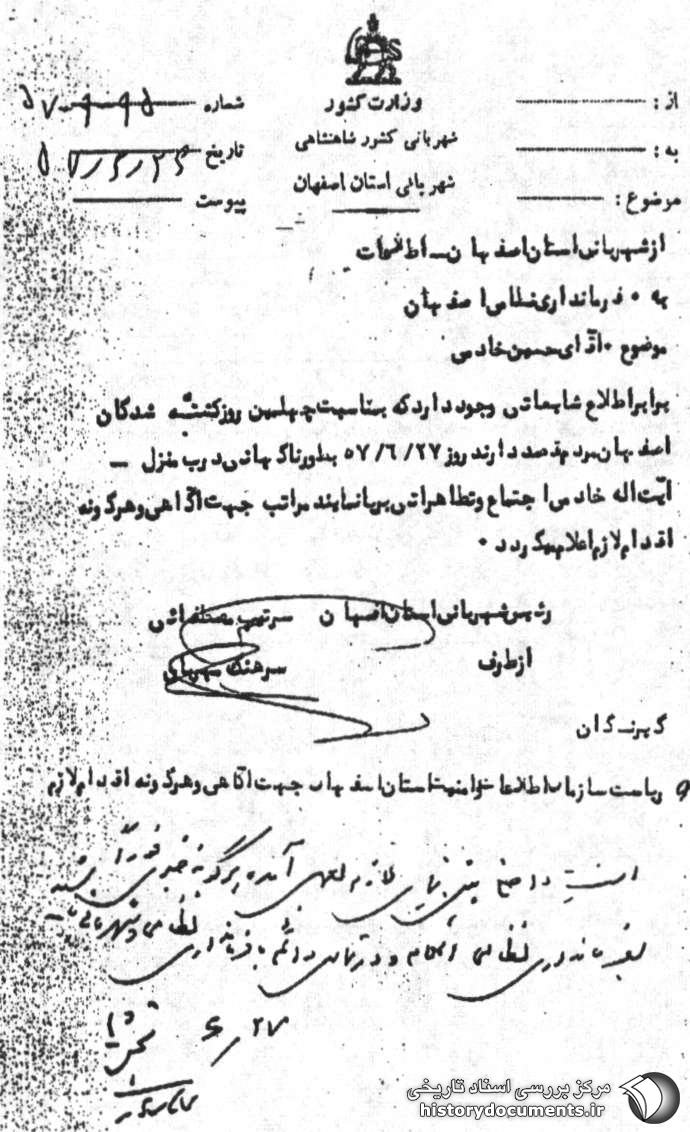 وزارت کشور
شهربانی کشور شاهنشاهی
شهربانی استان اصفهان
شماره ۵-۹-۵۷
تاریخ
پیوست
از :
به :
موضوع :
از شهربانی استان اصفهان ـ اطلاعات
به ۰ فرمانداری نظامی اصفهان
موضوع ۰ آقای حسین خادمی
برابر اطلاع شایعاتی وجود دارد که بمناسبت چهلمین روز کشته شدگان
اصفهان مردم قصد دارند روز ۵۷/۶/۲۷ بطور ناگهانی درب منزل ـ
آیت اله خادمی اجتماع و تظاهراتی برپا نمایند مراتب جهت آگاهی و هرگونه
اقدام لازم اعلام میگردد ۰
رئیس شهربانی استان اصفهان سرتیپ
از طرف سرهنگ
گیرندگان
ریاست سازمان اطلاعات و امنیت استان اصفهان جهت آگاهی و هرگونه اقدام لازم
پیش بینی لازم بعمل آمده هرگونه خبری فوراً
بفرمانداری نظامی اعلام و در تماس دائم با فرمانداری نظامی و شهربانی
۶/۲۷
مرکز بررسی اسناد تاریخی
historydocuments.ir